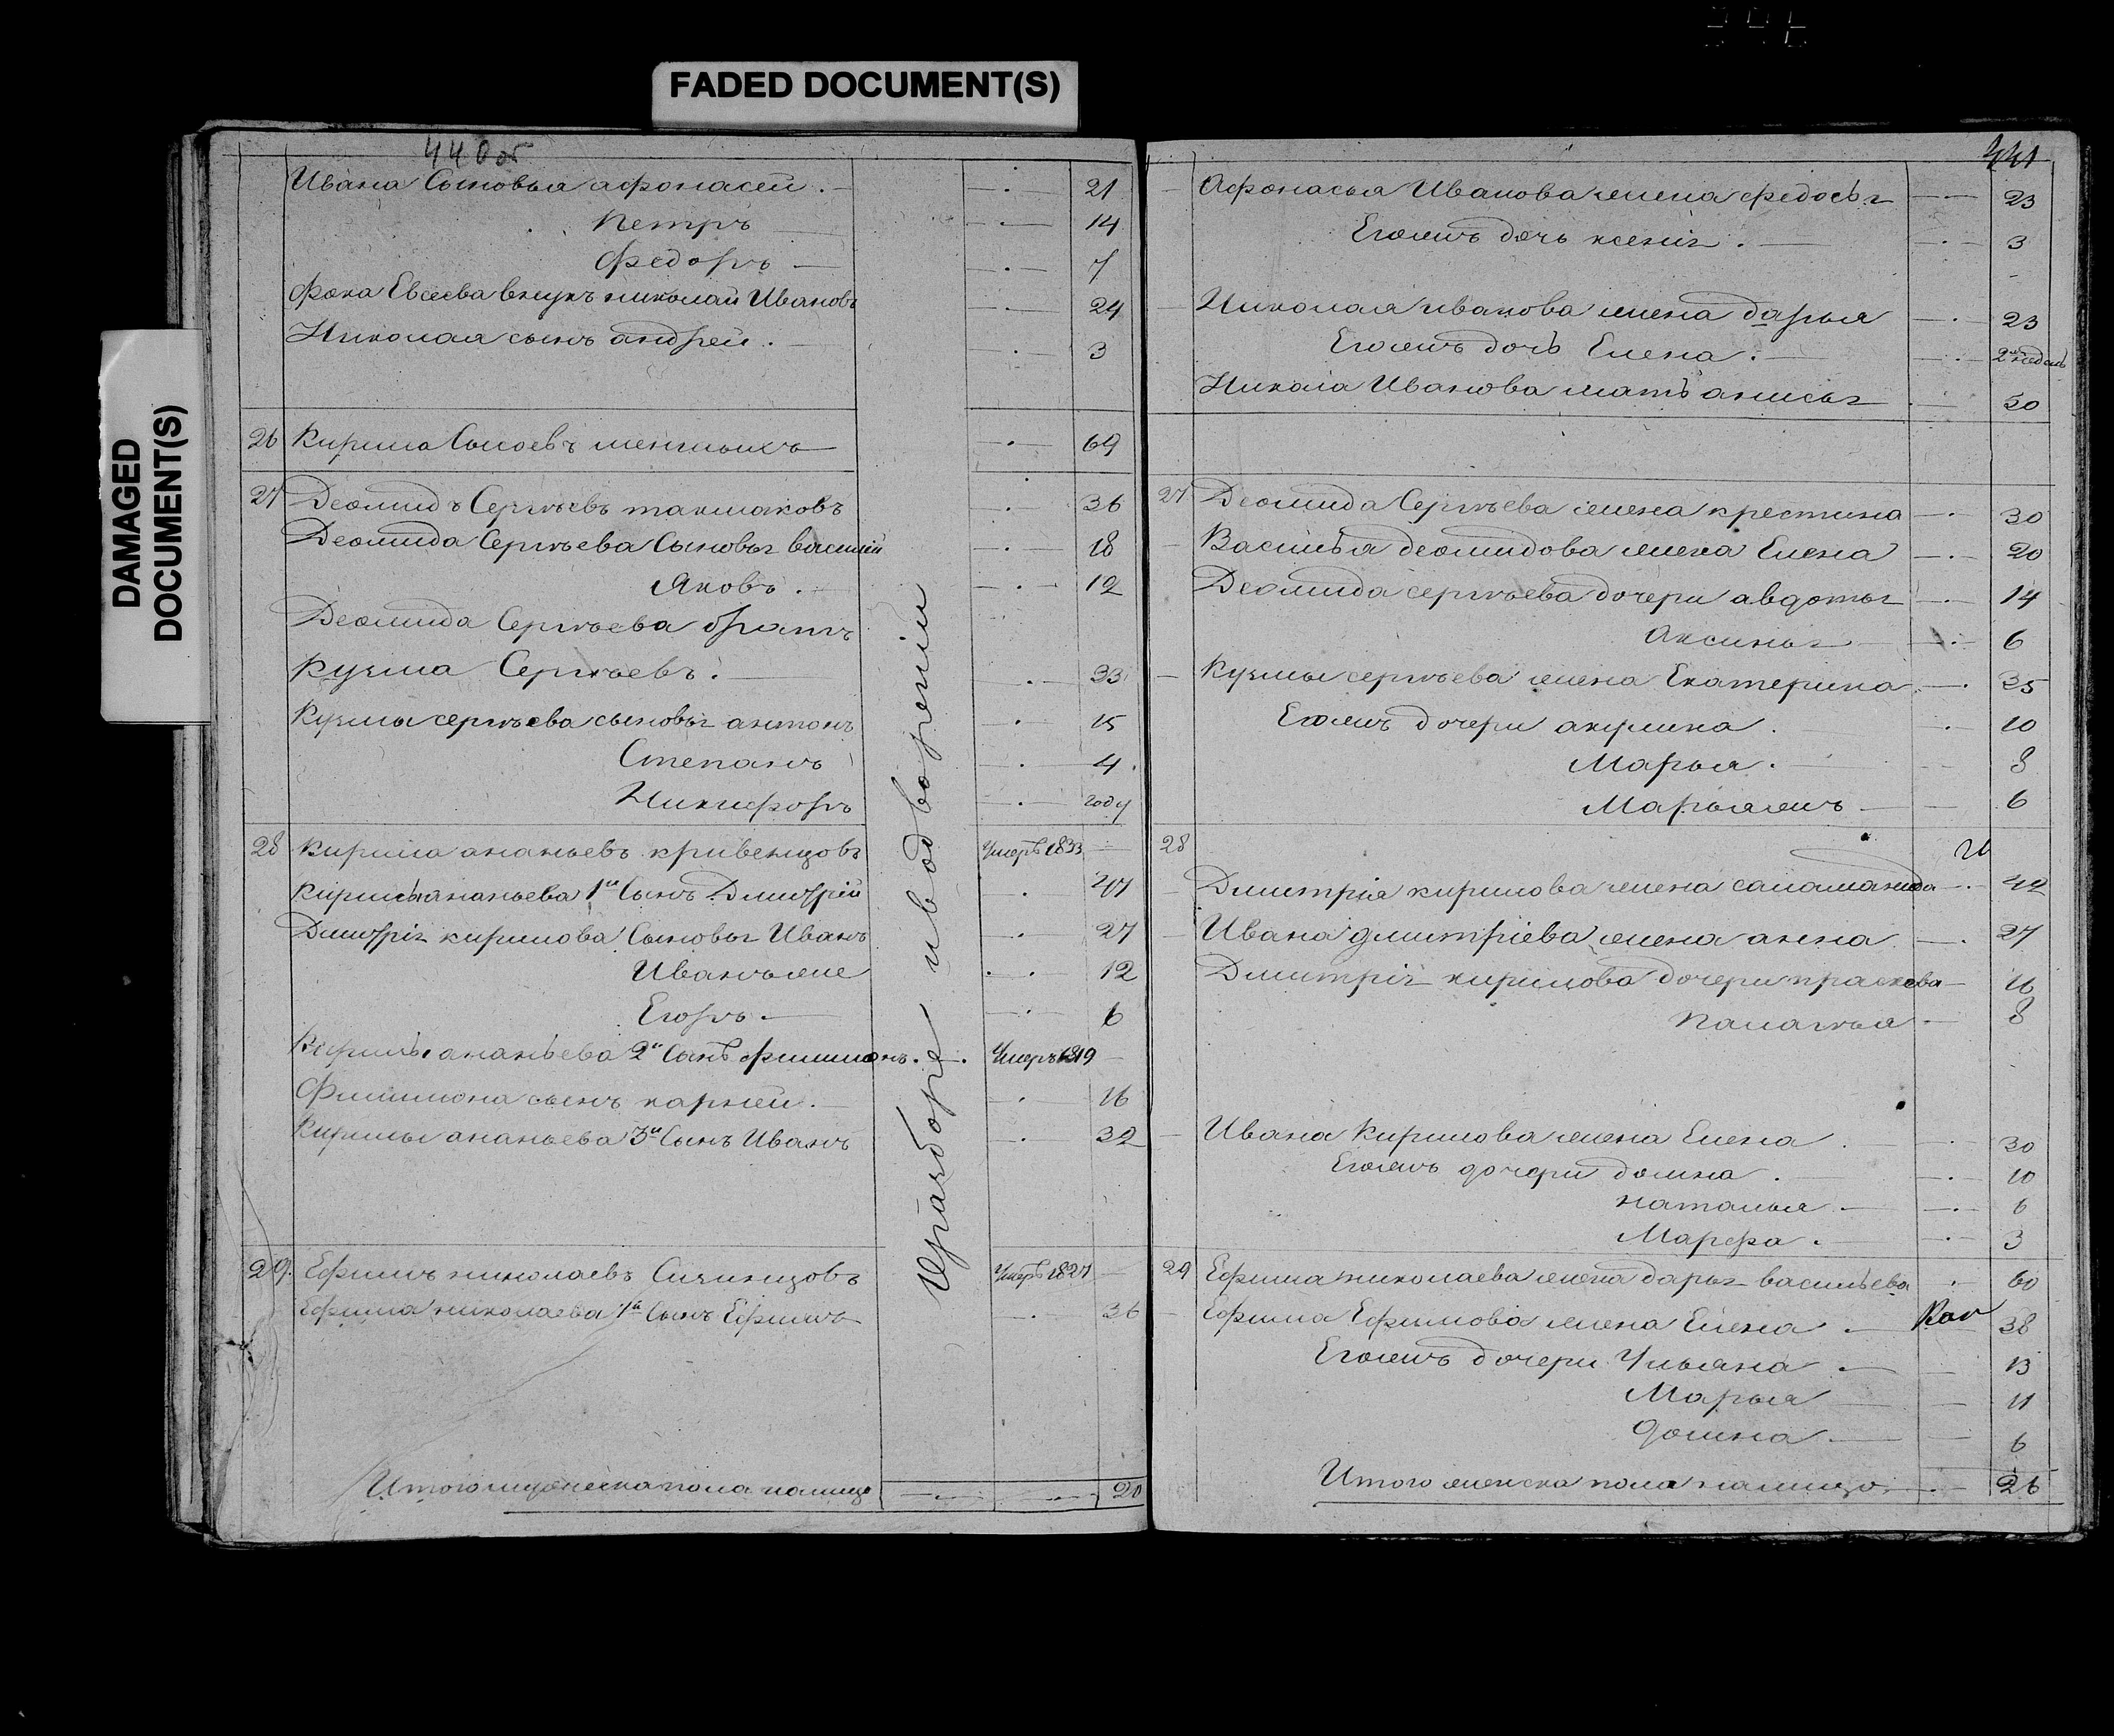 FADED DOCUMENT(S)
DAMAGED DOCUMENT(S)
440об
Ивана Сыновья афонасей . — 21
Петръ — 14
Федоръ — 7
Фока Евсеева внукъ николай Ивановъ — 24
Николая сынъ андрей . — 3
26 Кирила Сысоевъ — 69
27 Деомидъ Сергѣевъ токмаковъ 36
Деомида Сергѣева Сыновья василий — 18
Яковъ . — 12
Деомида Сергѣева братъ
Кузма Сергѣевъ . — 33
Кузмы сергѣева сыновья антонъ 15
Степанъ — 4
Никифоръ — году
28 Кирила ананьевъ кривенцовъ Умеръ 1833
Кирилы ананьева 1й Сынъ Дмитрій 47
Дмитрія кирилова Сыновья Иванъ 27
Иванъ же 12
Егоръ — 6
Кирилы ананьева 2й Сынъ филимонъ . — Умеръ 1819
Филимона сынъ карней . — 16
Кирилы ананьева 3й Сынъ Иванъ 32
29. Ефимъ николаевъ Умеръ 1827
Ефима николаева 1й Сынъ Ефимъ 36
Итого мужеска пола налицо 20
441
Афонасья Иванова жена федосья — 23
Егожъ дочь ксения . — 3
Николая иванова жена дарья 23
Егожъ дочь Елена . — 2 недель
Никола Иванова мать анисья 50
27 Деомида Сергѣева жена крестина — 30
Василья деомидова жена Елена — 20
Деомида сергѣева дочери авдотья — 14
Аксинья — 6
Кузмы сергѣева жена Екатерина . — 35
Егожъ дочери акулина . 10
Марья . — 8
Марья жъ — 6
28
Дмитрія кирилова жена саламанида — 42
Ивана дмитріева жена анна — 27
Дмитрія кирилова дочери прасковя — 16
Палагѣя — 8
Ивана Кирилова жена Елена . 30
Егожъ дочери домна . 10
наталья — 6
Марфа . — 3
29 Ефима николаева жена дарья васильева 60
Ефима Ефимова жена Елена . — 38
Егожъ дочери Ульяна — 13
Марья — 11
домна — 6
Итого женска пола налицо . — 26